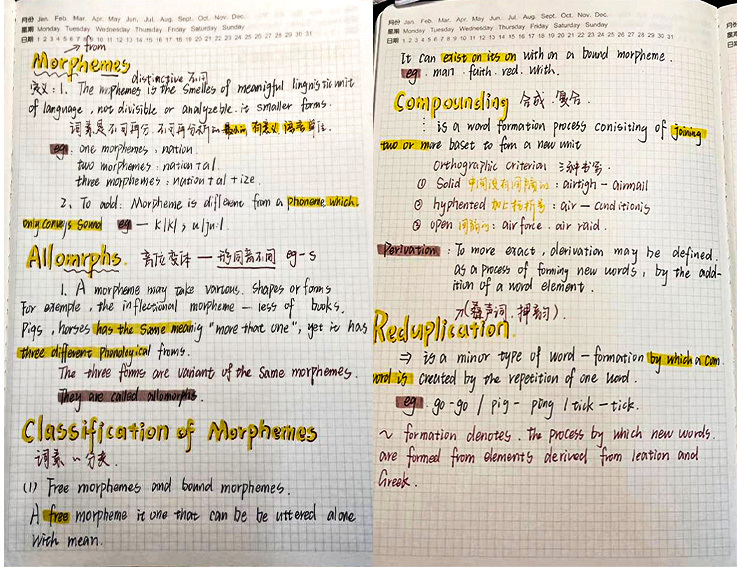 月份 Jan. Feb. Mar. Apr. May. Jun. Jul. Aug. Sept. Oct. Nov. Dec.
星期 Monday Tuesday Wednesday Thursday Friday Saturday Sunday
日期 1 2 3 4 5 6 7 8 9 10 11 12 13 14 15 16 17 18 19 20 21 22 23 24 25 26 27 28 29 30 31
→ from
Morphemes
distinctive 不同
定义: 1. The mrphemes is the smelles of meanigful lingnistic unit
of language, not divisible or analyzeble. it smaller forms.
词素是不可再分,不可再分析的最小的有意义语言单位.
eg: one morphemes: nation.
two morphemes: nation + al.
three morphemes: nation + al + ize.
2. To add: Morpheme is different from a phoneme which.
only conveys sound eg — k|k|, u|ju:|.
Allomrphs. 词位变体 — 形同音不同 eg -s
1. A morpheme may take various shapes or forms
For exemple, the inflectional morpheme — less of books.
Pigs, horses has the same meanig "more that one", yet it has
three different phonological froms.
The three forms are variant of the same morphemes.
They are called allomorphs.
Classification of Morphemes
词素的分类.
(1) Free morphemes and bound morphemes.
A free morpheme is one that can be be uttered alone
with mean.
月份 Jan. Feb. Mar. Apr. May. Jun. Jul. Aug. Sept. Oct. Nov. Dec.
星期 Monday Tuesday Wednesday Thursday Friday Saturday Sunday
日期 1 2 3 4 5 6 7 8 9 10 11 12 13 14 15 16 17 18 19 20 21 22 23 24 25 26 27 28 29 30 31
It can exist on its on with on a bound morpheme.
eg. man. faith. red. with.
Compounding 合成.复合.
: is a word formation process conisiting of joining
two or more baset to fom a new unit
Orthographic criterion 三种书写.
① Solid 中间没有间隔的: airtigh - airmail
② hyphented 加上标折号: air - cunditionis
③ open 间隔的: air force. air raid.
Derivation: To more exact, derivation may be defined.
as a process of forming new words, by the add-
ition of a word element.
(叠声词.押韵).
Reduplication.
⇒ is a minor type of word - formation by which a com
word is created by the repetition of one word.
eg. go-go / pig - pong / tick - tick.
~ formation denotes. The process by which new words.
are formed from elements derived from leation and
Greek.
月份
星期
日期